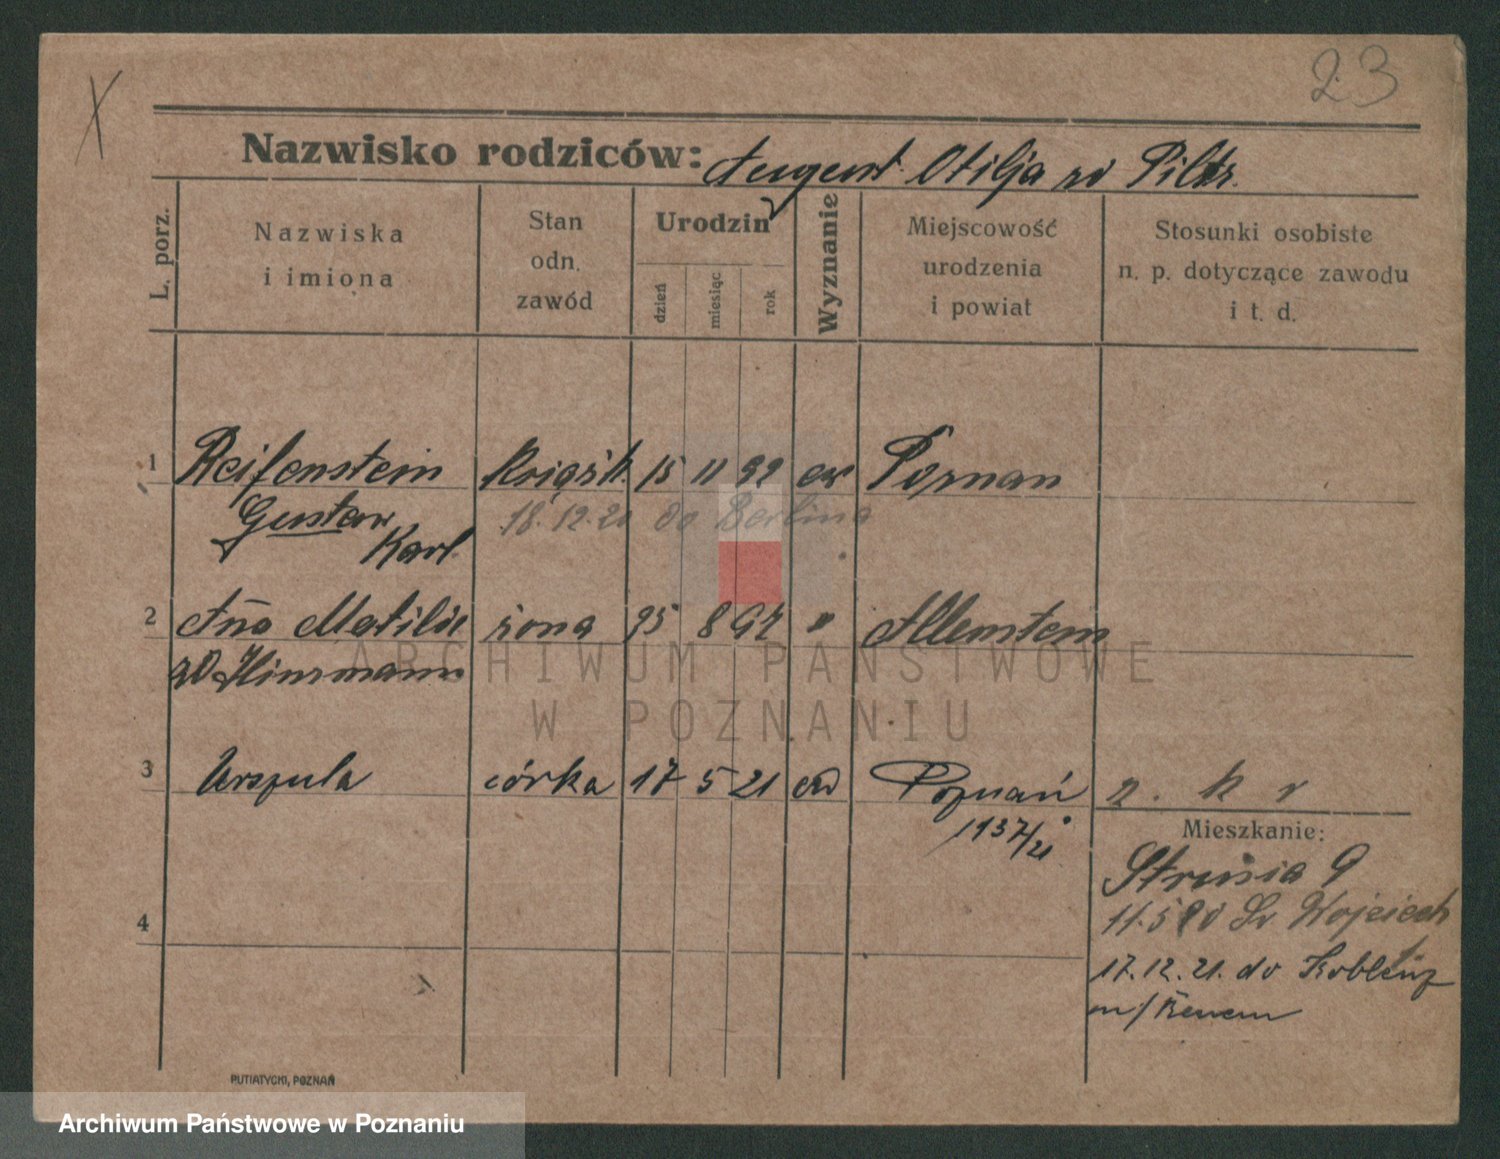 23
X
Nazwisko rodziców: August Otilja zd
L. porz.
Nazwiska
i imiona
Stan
odn.
zawód
Urodzin
dzień
miesiąc
rok
Wyznanie
Miejscowość
urodzenia
i powiat
Stosunki osobiste
n. p. dotyczące zawodu
i t. d.
1 Reifenstein 15 11 92 ew Poznan
Gustav 18.12.20 do Berlina
Karl
2 Matilde żona 25 8 " Allenstein
zd Hinzmann
3 Urszula córka 17 5 21 ew Poznań
1137/21
Mieszkanie:
Strusia 9
Św Wojciech
4
17.12.21. do Koblenz
n/Renem
PUTIATYCKI, POZNAŃ
ARCHIWUM PAŃSTWOWE
W POZNANIU
Archiwum Państwowe w Poznaniu